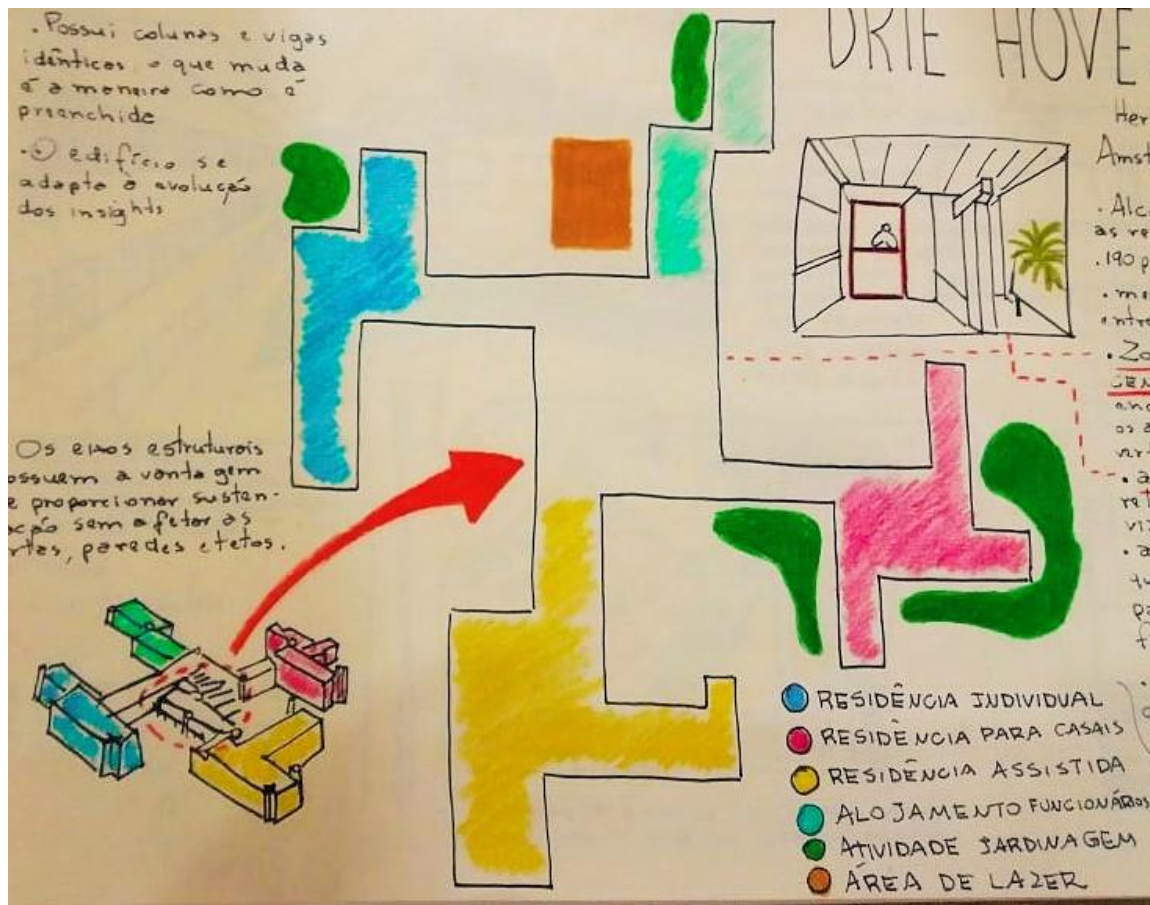 . Possui colunas e vigas
idênticas, o que muda
é a maneira como é
preenchide
. O edifício se
adapta à evolução
dos insights
Os eixos estruturais
ossuem a vantagem
e proporcionar susten-
ação sem afetar as
rtas, paredes e tetos.
DRIE HOVE
Her
Amst
. Alc
as re
. 190 p
. ma
entre
. Zo
CEN
anc
os a
ver
. a
re
viz
. a
qu
pa
f
RESIDÊNCIA INDIVIDUAL
RESIDÊNCIA PARA CASAIS
RESIDÊNCIA ASSISTIDA
ALOJAMENTO FUNCIONÁRIOS
ATIVIDADE JARDINAGEM
ÁREA DE LAZER